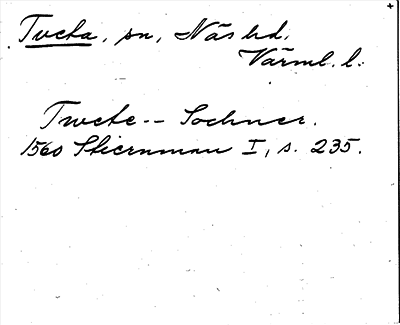 Tveta, sn, Näs hd,
Värml. l.
Twete -- Sochner.
1560 Stiernman I, s. 235.